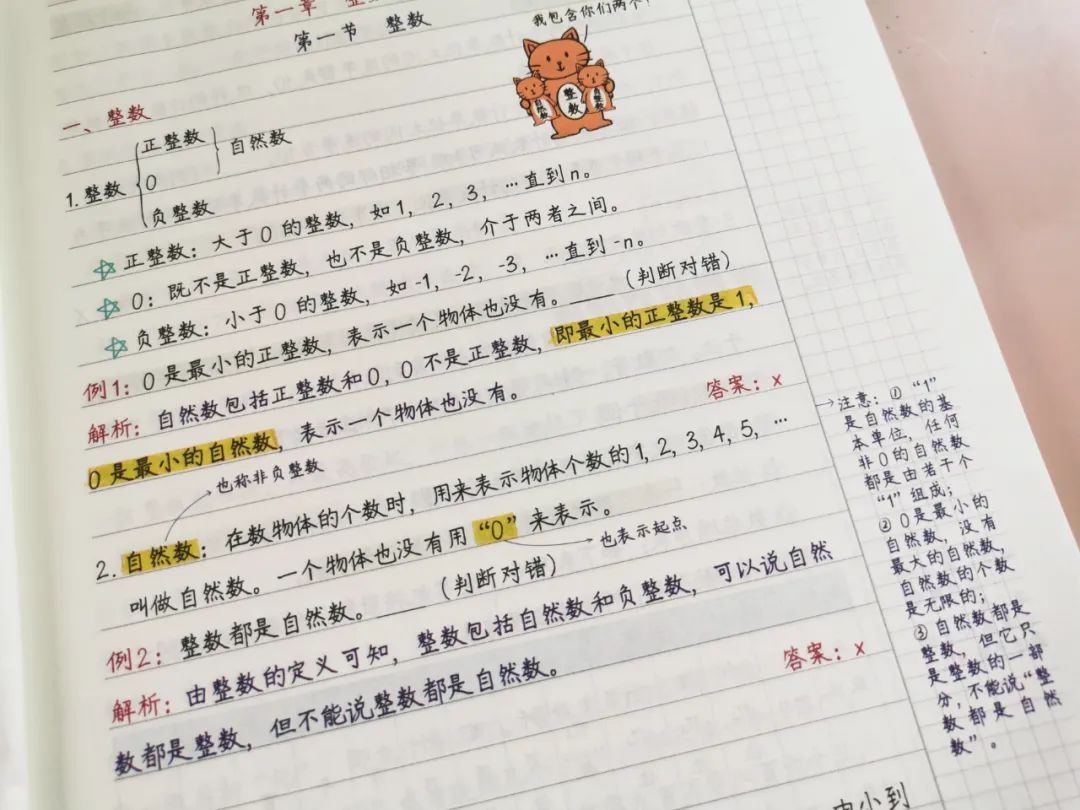 第一章 整
第一节 整数
我包含你们两个！
自然数
整数
自然数
一、整数
1. 整数
正整数
0
负整数
自然数
☆ 正整数：大于0的整数，如1，2，3，…直到n。
☆ 0：既不是正整数，也不是负整数，介于两者之间。
☆ 负整数：小于0的整数，如-1，-2，-3，…直到-n。
例1：0是最小的正整数，表示一个物体也没有。____（判断对错）
解析：自然数包括正整数和0，0不是正整数，即最小的正整数是1，
0是最小的自然数，表示一个物体也没有。
答案：×
也称非负整数
2. 自然数：在数物体的个数时，用来表示物体个数的1，2，3，4，5，…
叫做自然数。一个物体也没有用“0”来表示。
也表示起点
例2：整数都是自然数。____（判断对错）
解析：由整数的定义可知，整数包括自然数和负整数，可以说自然
数都是整数，但不能说整数都是自然数。
答案：×
→注意：①“1”
是自然数的基
本单位，任何
非0的自然数
都是由若干个
“1”组成；
②0是最小的
自然数，没有
最大的自然数，
自然数的个数
是无限的；
③自然数都是
整数，但它只
是整数的一部
分，不能说“整
数都是自然
数”。
由小到